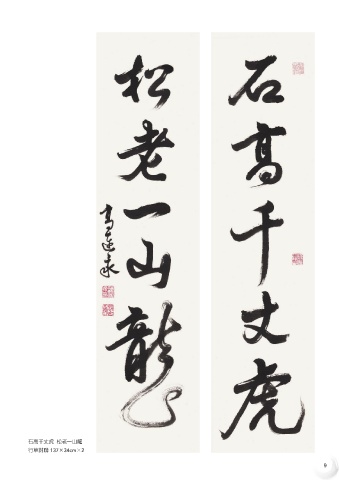 石高千丈虎
松老一山龍
高蓮永
石高千丈虎 松老一山龍
行草對聯 137×34cm×2
9